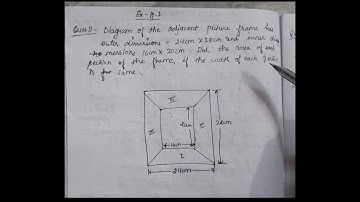 Ex-11.1
Ques 11:- Diagram of the adjacent picture frame has
outer dimensions = 24cm x 28cm and inner di-
mensions 16cm x 20cm. Find the area of each
section of the frame, if the width of each
is same.
III
II
II
20cm
16cm
28cm
I
24cm